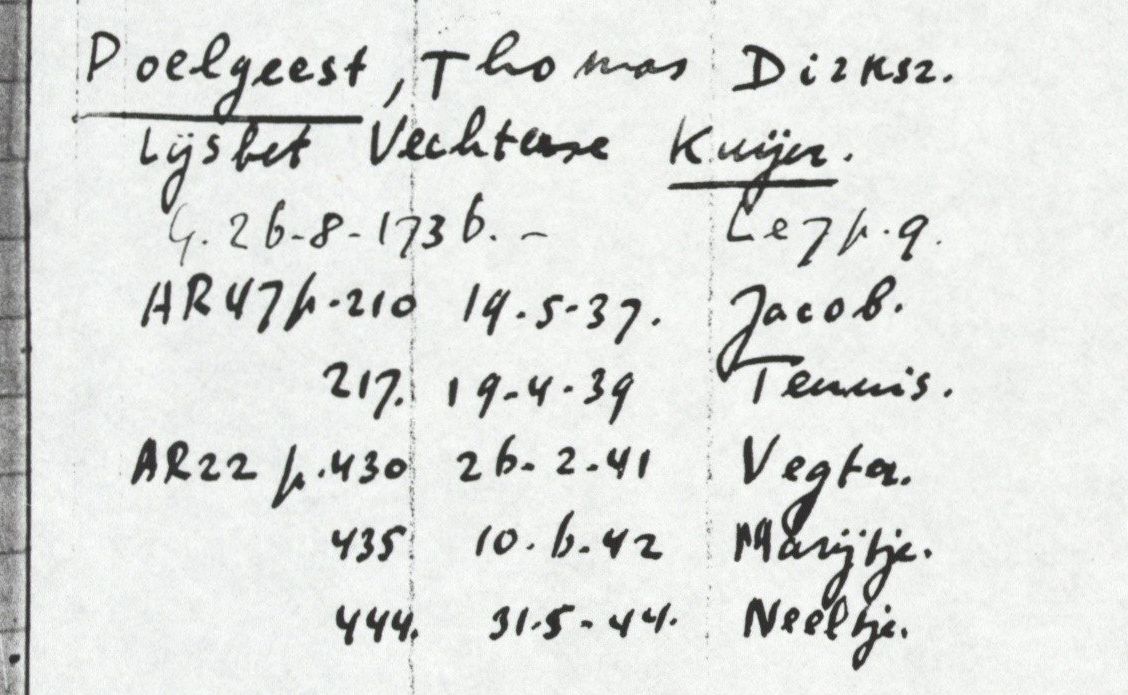 Poelgeest, Thomas Dirksz.
Lijsbet Vechterse Kuijer.
G. 26-8-1736. - Le 7 p. 9.
AR47 p. 210 19-5-37. Jacob.
217. 19-4-39 Teunis.
AR22 p. 430 26-2-41 Vegter.
435 10-6-42 Marijtje.
444. 31-5-44. Neeltje.